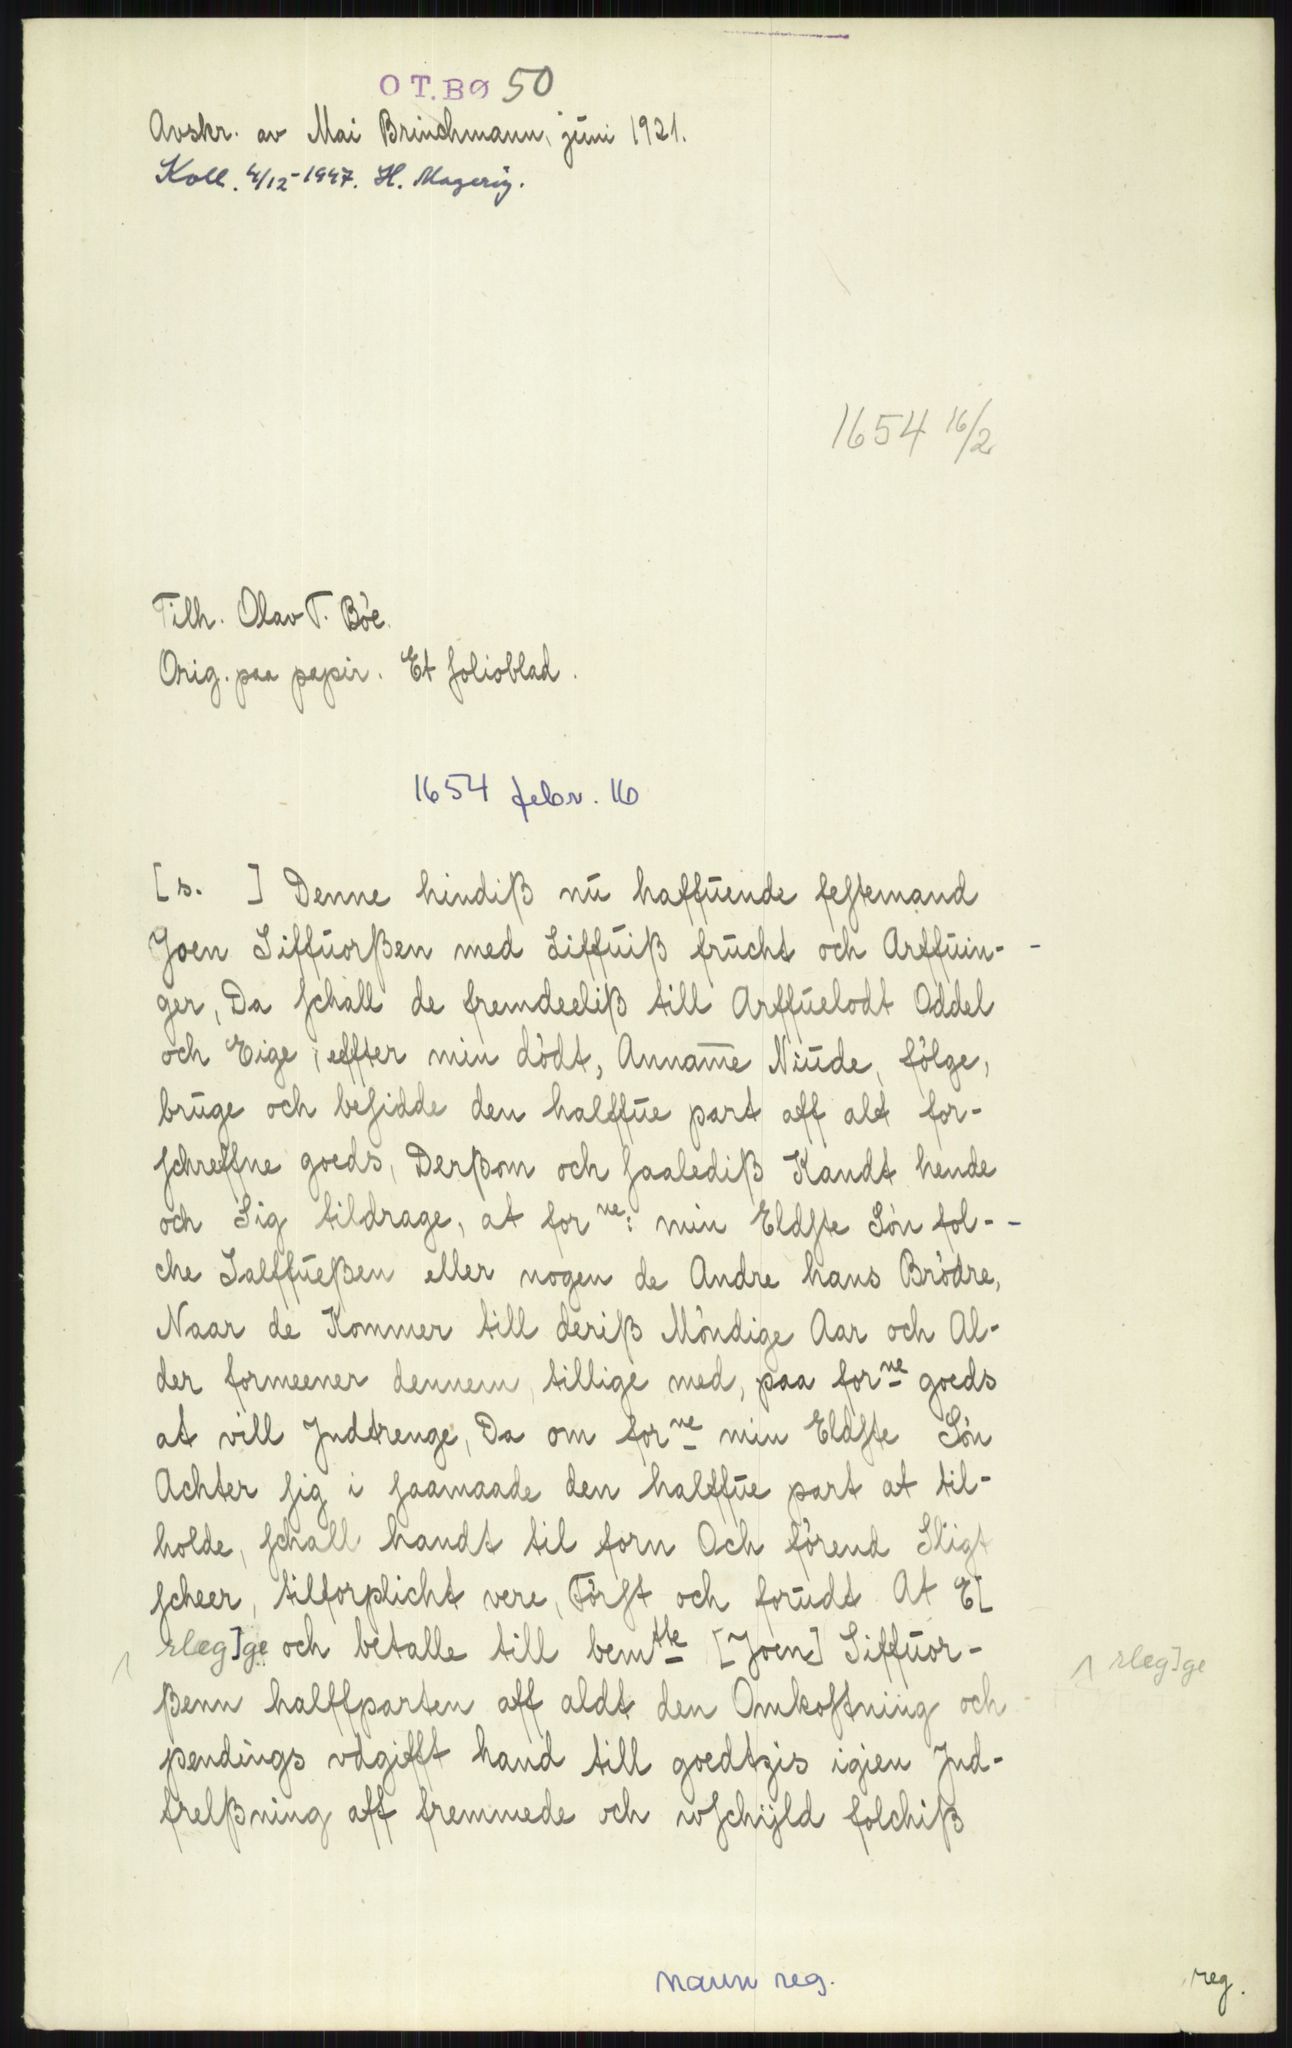 O T. BØ 50
Avskr. av Mai Brinchmann, juni 1921.
Koll. 4/12-1947. H. Magerøy.
1654 16/2
Tilh. Olav T. Böe.
Orig. paa papir. Et folioblad.
1654 febr. 16
[s. ] Denne hindiß nu haffuende festemand
Joen Siffuorßen med Liffuiß frucht och Arffuin-
ger, Da schall de fremdeeliß till Arffuelodt Oddel
och Eige, effter min dödt, Anname Niude, fölge,
bruge och besidde den halffue part aff alt for-
schreffne goeds, Derßom och saalediß Kandt hende
och Sig tildrage, at for ne: min Eldste Sön fol-
che Salffueßen eller nogen de Andre hans Brödre,
Naar de Kommer till deriß Möndige Aar och Al-
der formeener dennem, tillige med, paa forne goeds
at vill Jndtrenge, Da om forne min Eldste Sön
Achter sig i saamaade den halffue part at til-
holde, schall handt til forn Och förend Sligt
scheer, tilforplicht vere, Först och forudt At E[
rlæg]ge och betalle till bemtte [Joen] Siffuor-
ßenn halffparten aff aldt den Omkostning och
pendings vdgifft hand till goedtzis igien Jnd-
frelßning aff fremmede och wschÿld folchiß
rlæg]ge
navn reg.
reg.